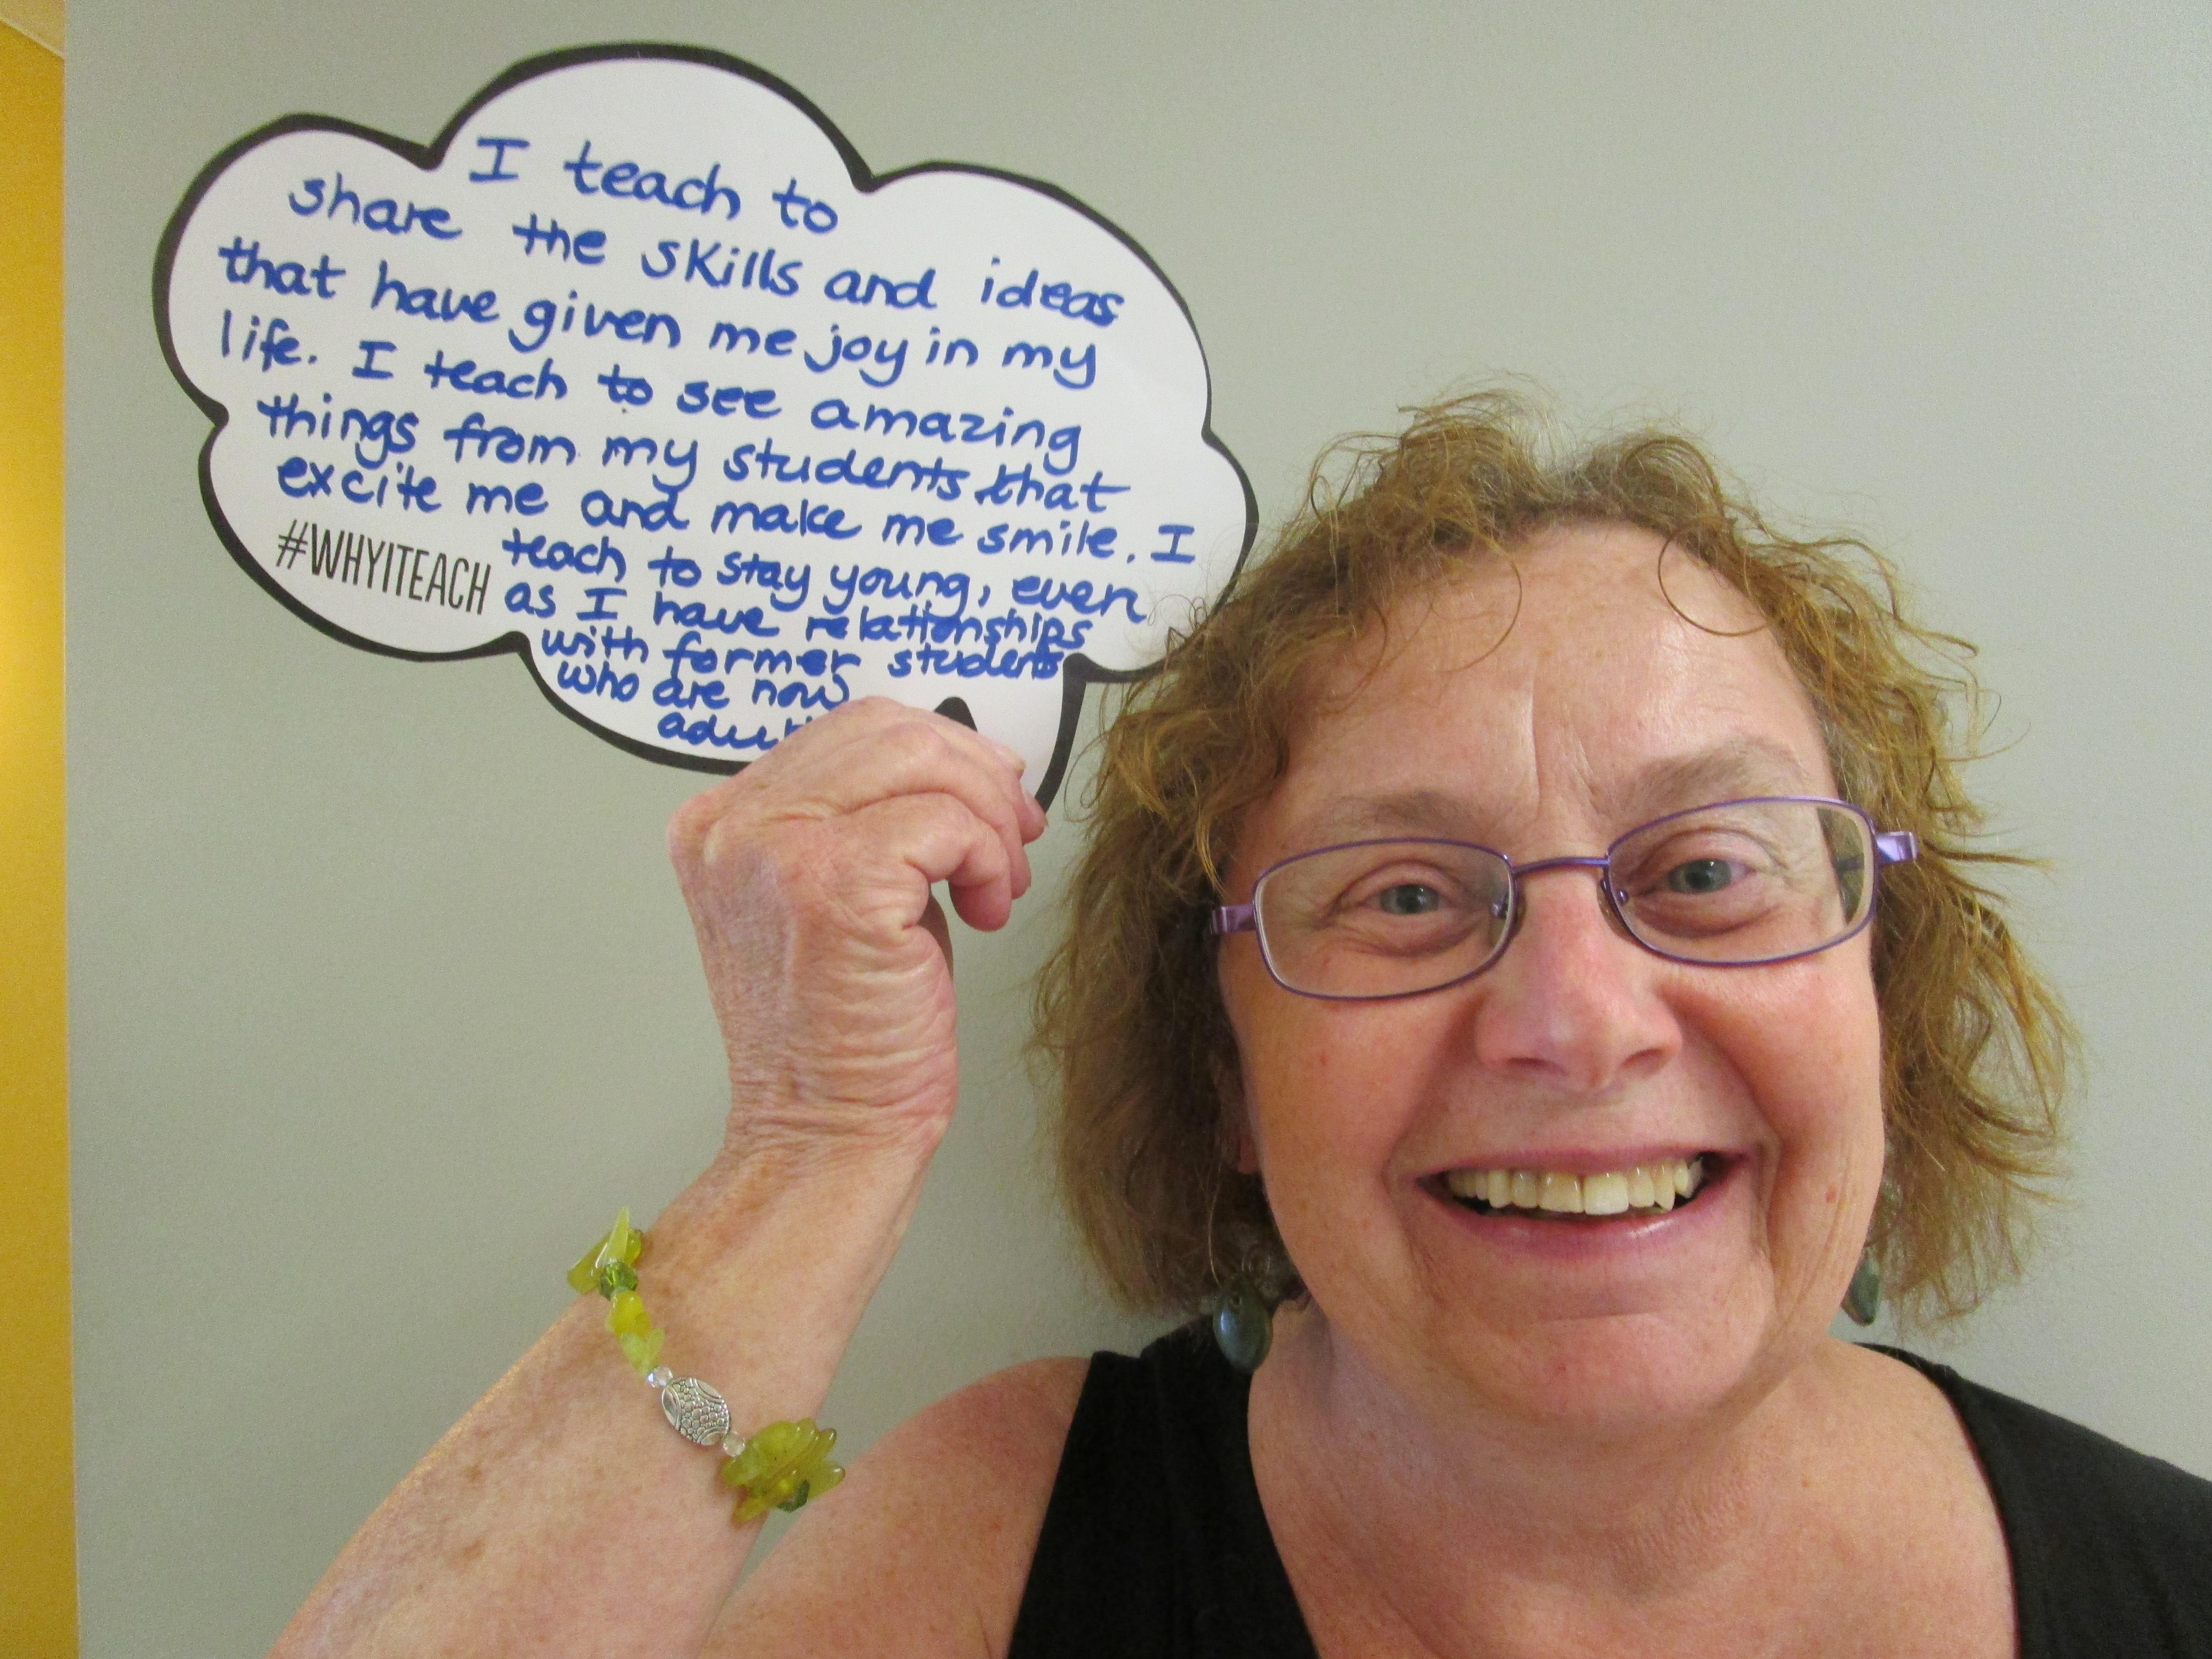 I teach to
share the skills and ideas
that have given me joy in my
life. I teach to see amazing
things from my students that
excite me and make me smile. I
#WHYITEACH teach to stay young, even
as I have relationships
with former students
who are now